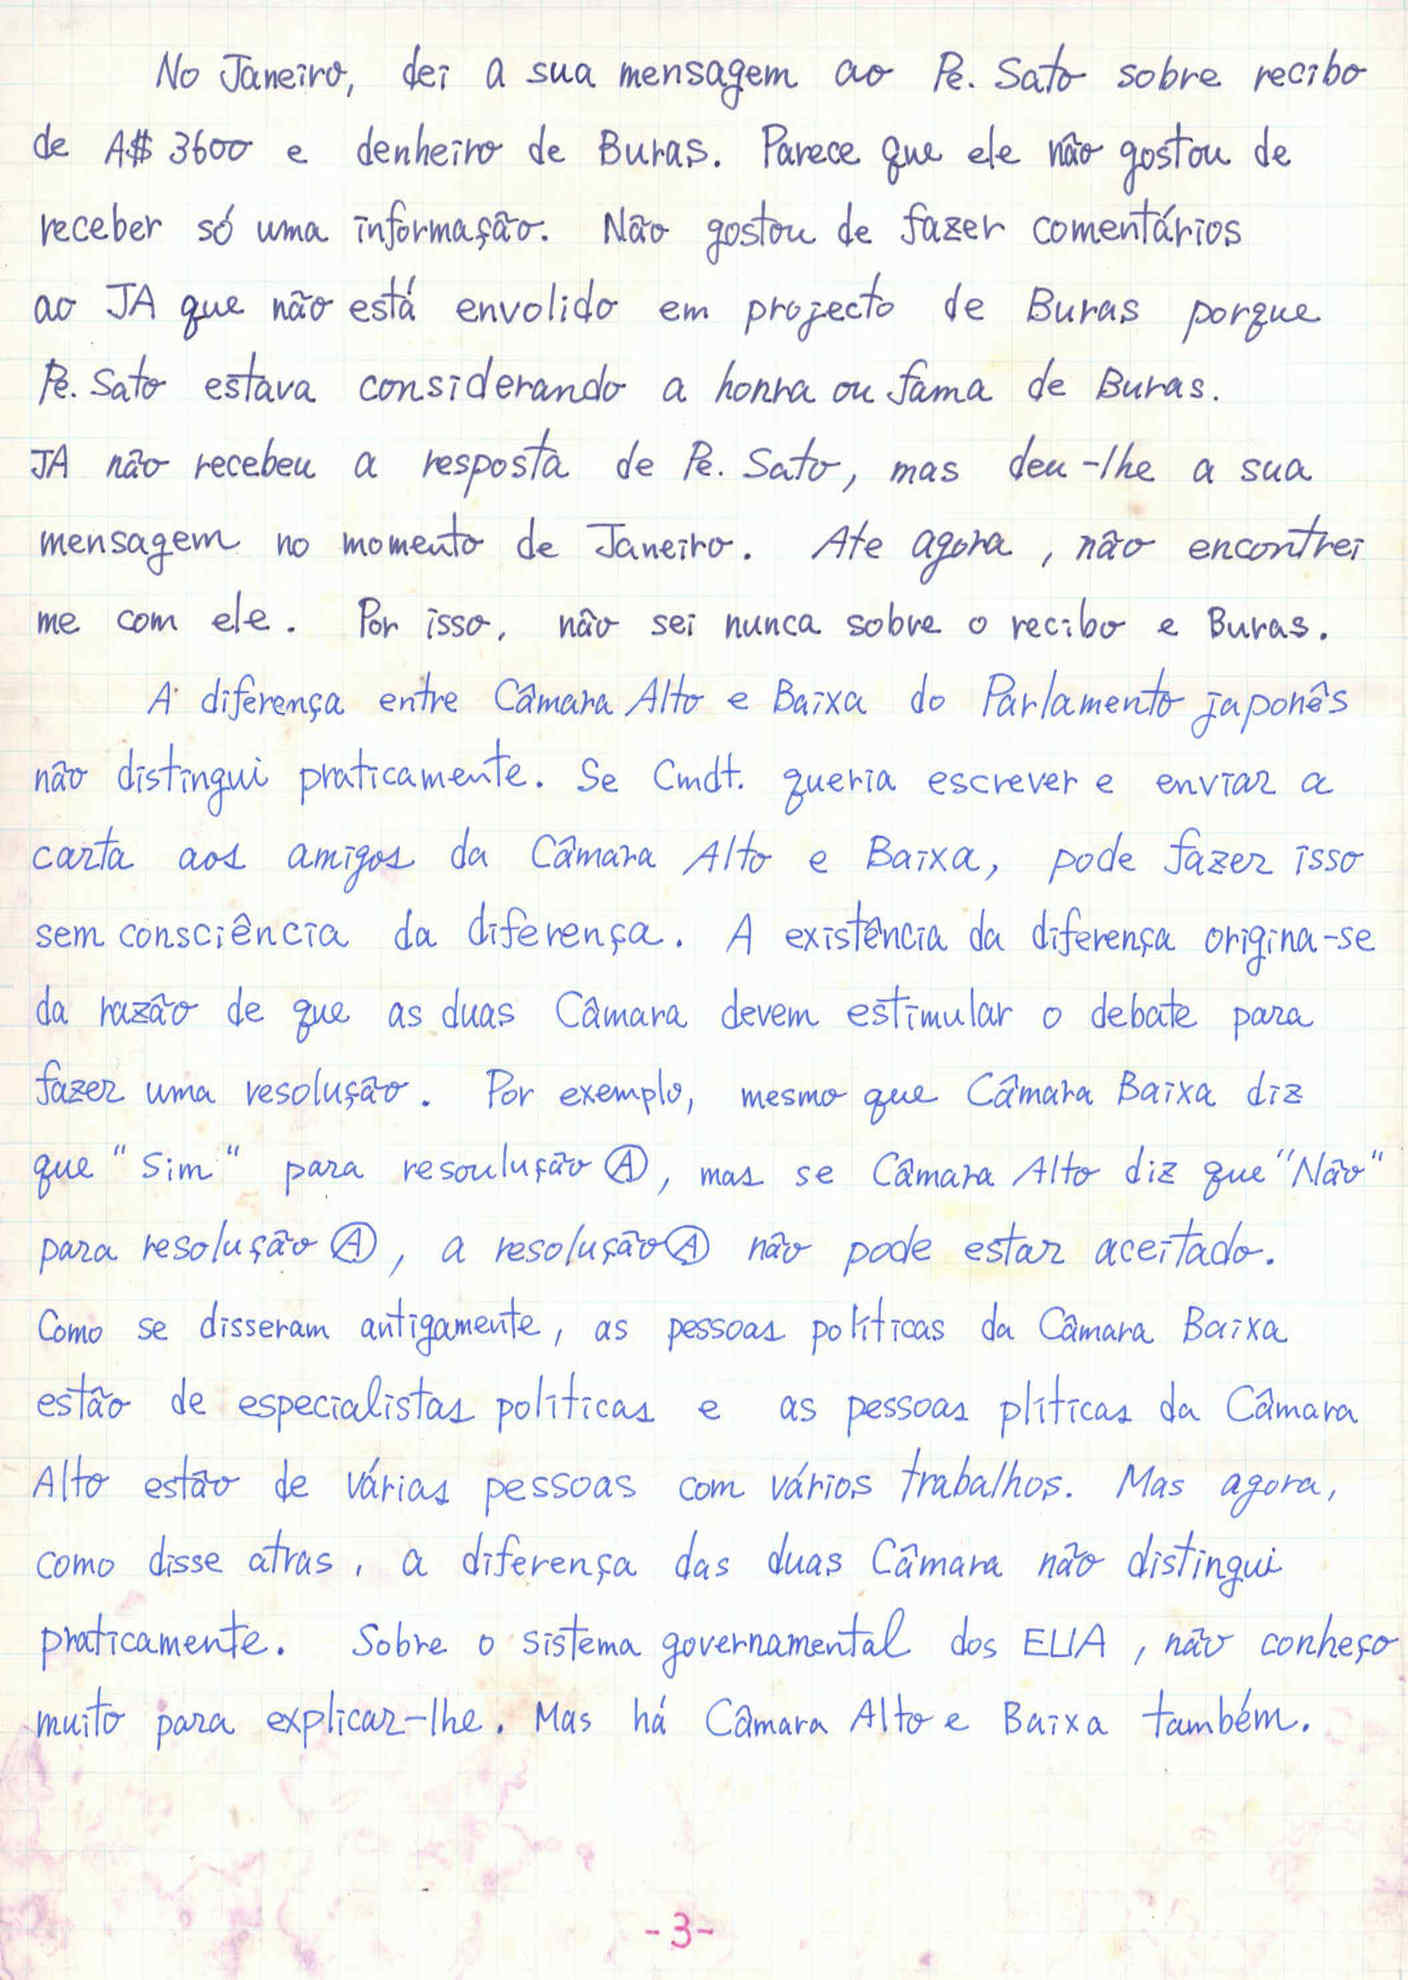 No Janeiro, dei a sua mensagem ao Pe. Sato sobre recibo
de A$ 3600 e denheiro de Buras. Parece que ele não gostou de
receber só uma informação. Não gostou de fazer comentários
ao JA que não está envolido em projecto de Buras porque
Pe. Sato estava considerando a honra ou fama de Buras.
JA não recebeu a resposta de Pe. Sato, mas deu-lhe a sua
mensagem no momento de Janeiro. Ate agora, não encontrei
me com ele. Por isso, não sei nunca sobre o recibo e Buras.
A diferença entre Câmara Alto e Baixa do Parlamento japonês
não distingui praticamente. Se Cmdt. queria escrever e enviar a
carta aos amigos da Câmara Alto e Baixa, pode fazer isso
sem consciência da diferença. A existência da diferença origina-se
da razão de que as duas Câmara devem estimular o debate para
fazer uma resolução. Por exemplo, mesmo que Câmara Baixa diz
que "Sim" para resoulução Ⓐ, mas se Câmara Alto diz que "Não"
para resolução Ⓐ, a resolução Ⓐ não pode estar aceitado.
Como se disseram antigamente, as pessoas políticas da Câmara Baixa
estão de especialistas políticas e as pessoas plíticas da Câmara
Alto estão de várias pessoas com vários trabalhos. Mas agora,
como disse atras, a diferença das duas Câmara não distingui
praticamente. Sobre o sistema governamental dos EUA, não conheço
muito para explicar-lhe. Mas há Câmara Alto e Baixa também.
-3-